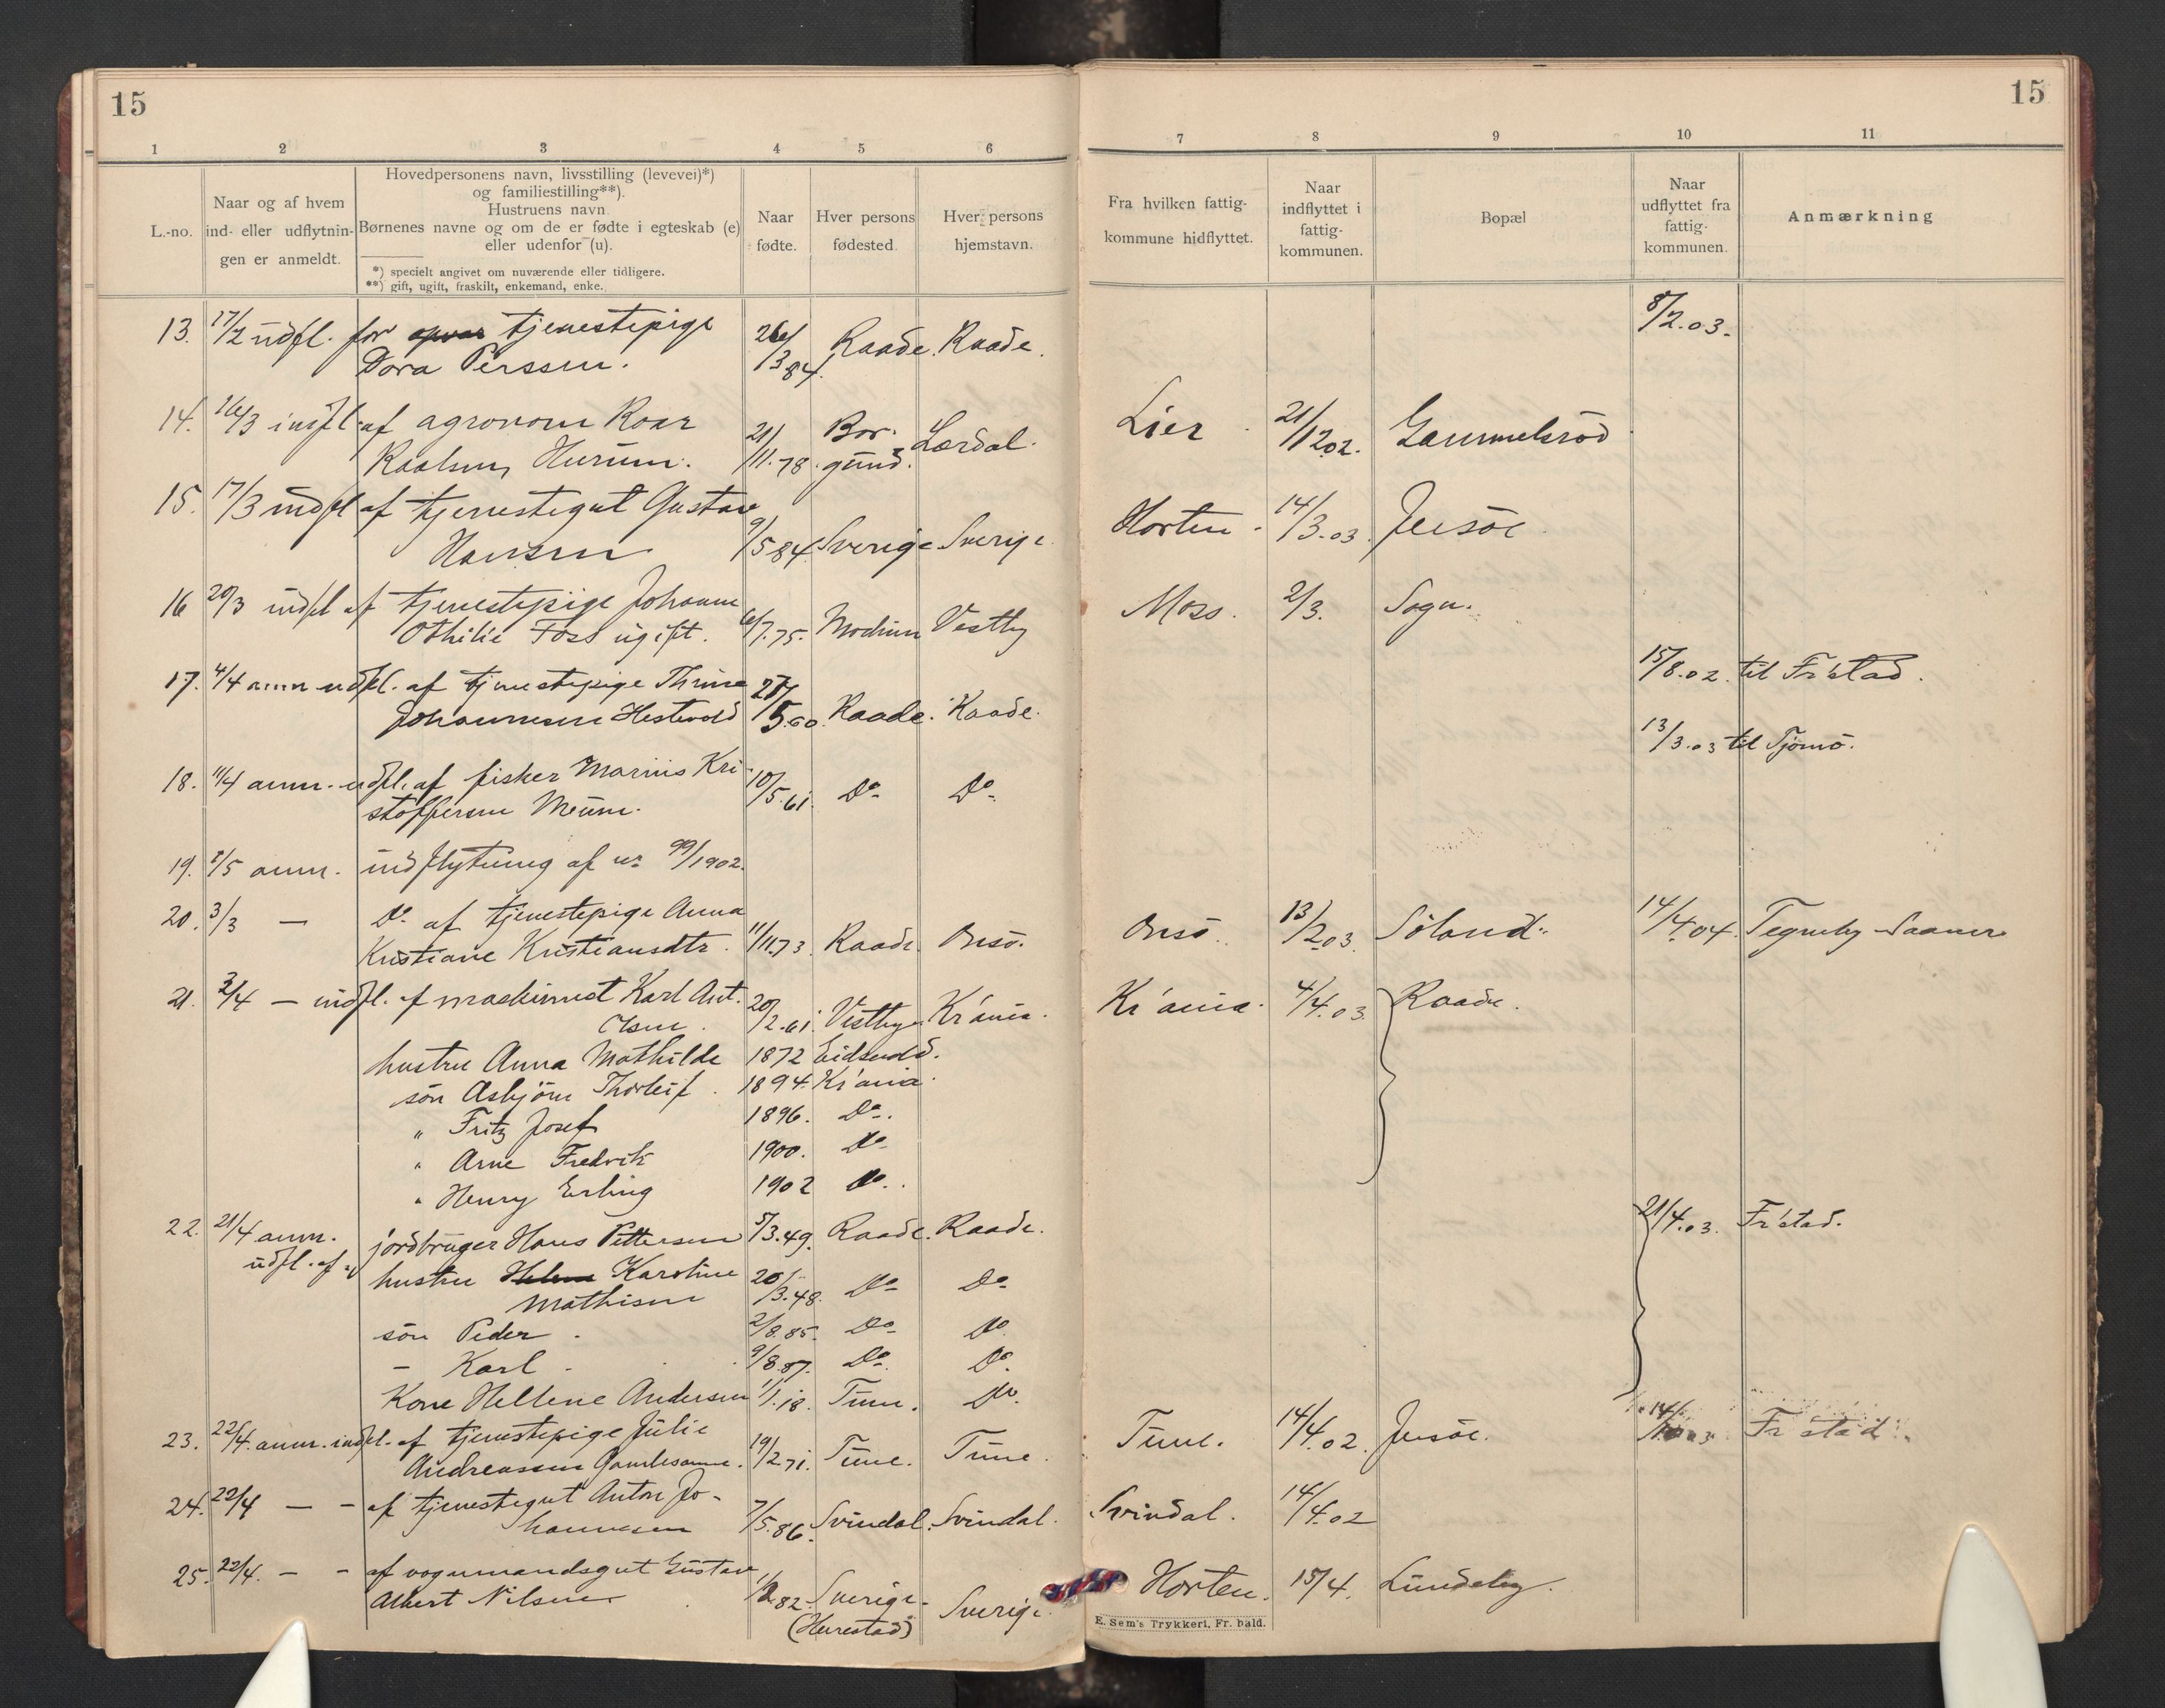 15
15
1 2 3 4 5 6 7 8 9 10 11
L.-no.
Naar og af hvem
ind- eller udflytnin-
gen er anmeldt.
Hovedpersonens navn, livsstilling (levevei)*)
og familiestilling**).
Hustruens navn.
Børnenes navne og om de er fødte i egteskab (e)
eller udenfor (u).
*) specielt angivet om nuværende eller tidligere.
**) gift, ugift, fraskilt, enkemand, enke.
Naar
fødte.
Hver persons
fødested.
Hver persons
hjemstavn.
Fra hvilken fattig-
kommune hidflyttet.
Naar
indflyttet i
fattig-
kommunen.
Bopæl
Naar
udflyttet fra
fattig-
kommunen.
Anmærkning
13. 17/2 udfl. for tjenestepige 26/3 84. Raade. Raade. 8/2.03.
Dora Perssen.
14. 16/3 indfl. af agronom Roar 21/11.78. Bor- Lærdal. Lier 21/12 02. Gammelsrød
Raalsen, Hurum. gund.
15. 17/3 indfl af tjenestegut Gustav
Hansen 9/5 84 Sverige Sverige. Horten. 14/3.03. Jersöe
16 20/3 indfl af tjenestepige Johanne
Othilie Foss ugift. 6/7.75. Modum Vestby Moss. 2/3. Sogn.
17. 4/4 anm udfl. af tjenestepige Thrine 27/5.60. Raade. Raade. 15/8.02. til Fr'stad.
Johannesen Hestevold
18. 11/4 anm. udfl. af fisker Marius Kri- 10/5.61. Do Do 13/3.03 til Tjømø.
stoffersen Meum.
19. 8/5 anm. indflytning af no 99/1902.
20. 3/3 — Do af tjenestepige Anna
Kristiane Kristiansdtr. 11/11.73. Raade. Onsö. Onsö. 13/2.03. Söland. 14/4.04. Tegneby Saaner
21. 3/4 — indfl. af maskinist Karl Ant. 20/2.61. Vestby Kr'ania. Kr'ania. 4/4.03. Raade.
Olsen.
hustru Anna Mathilde 1872 Eidsvold.
sön Asbjörn Thorleif. 1894. Kr'ania.
" Fritz Josef 1896. Do.
" Arne Fredrik 1900. Do
" Henry Erling 1902 Do.
22. 21/4 anm. jordbruger Hans Pettersen 5/3.49. Raade. Raade. 21/4.03. Fr'stad.
udfl. af
hustru Karoline 20/3.48. Do Do
Mathisen
sön Peder. 2/8.85. Do Do
— Karl. 9/8.87. Do. Do.
Kone Hellene Andersen 1/1.18. Tune. Do.
23. 22/4. anm. indfl. af tjenestepige Julie
Andreassen 19/2.71. Tune. Tune. Tune. 14/4.02. Jersöe. Fr'stad.
24. 22/4 — — af tjenestegut Anton Jo-
hannesen 7/5.86. Svindal. Svindal. Svindal. 14/4.02
25. 22/4. — — af vognmandsgut Gustav
Albert Nilsen Sverige. Sverige. Horten. 15/4. Lundeby.
E. Sem's Trykkeri, Fr. hald.